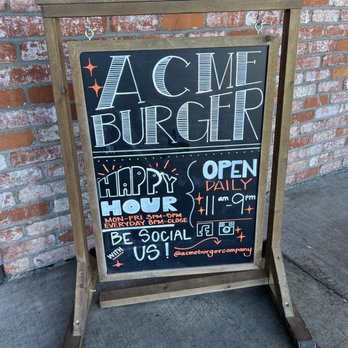 ACME
BURGER
HAPPY
HOUR
MON-FRI 3PM-5PM
EVERYDAY 8PM-CLOSE
OPEN
DAILY
11 am 9 pm
BE SOCIAL
WITH US!
@acmeburgercompany